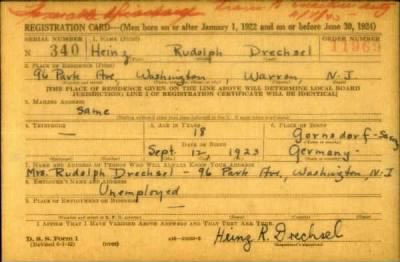 REGISTRATION CARD—(Men born on or after January 1, 1922 and on or before June 30, 1924)
SERIAL NUMBER 1. NAME (Print) ORDER NUMBER
N 340 Heinz Rudolph Drechsel 11969
2. PLACE OF RESIDENCE (Print)
96 Park Ave, Washington Warren, N.J
[THE PLACE OF RESIDENCE GIVEN ON THE LINE ABOVE WILL DETERMINE LOCAL BOARD
JURISDICTION; LINE 2 OF REGISTRATION CERTIFICATE WILL BE IDENTICAL]
3. MAILING ADDRESS
Same
4. TELEPHONE 5. AGE IN YEARS 6. PLACE OF BIRTH
— 18
DATE OF BIRTH
Sept. 12 1923 Germany
7. NAME AND ADDRESS OF PERSON WHO WILL ALWAYS KNOW YOUR ADDRESS
Mrs. Rudolph Drechsel - 96 Park Ave, Washington, N.J
8. EMPLOYER'S NAME AND ADDRESS
Unemployed
9. PLACE OF EMPLOYMENT OR BUSINESS
I AFFIRM THAT I HAVE VERIFIED ABOVE ANSWERS AND THAT THEY ARE TRUE.
D. S. S. Form 1
(over) Heinz R. Drechsel